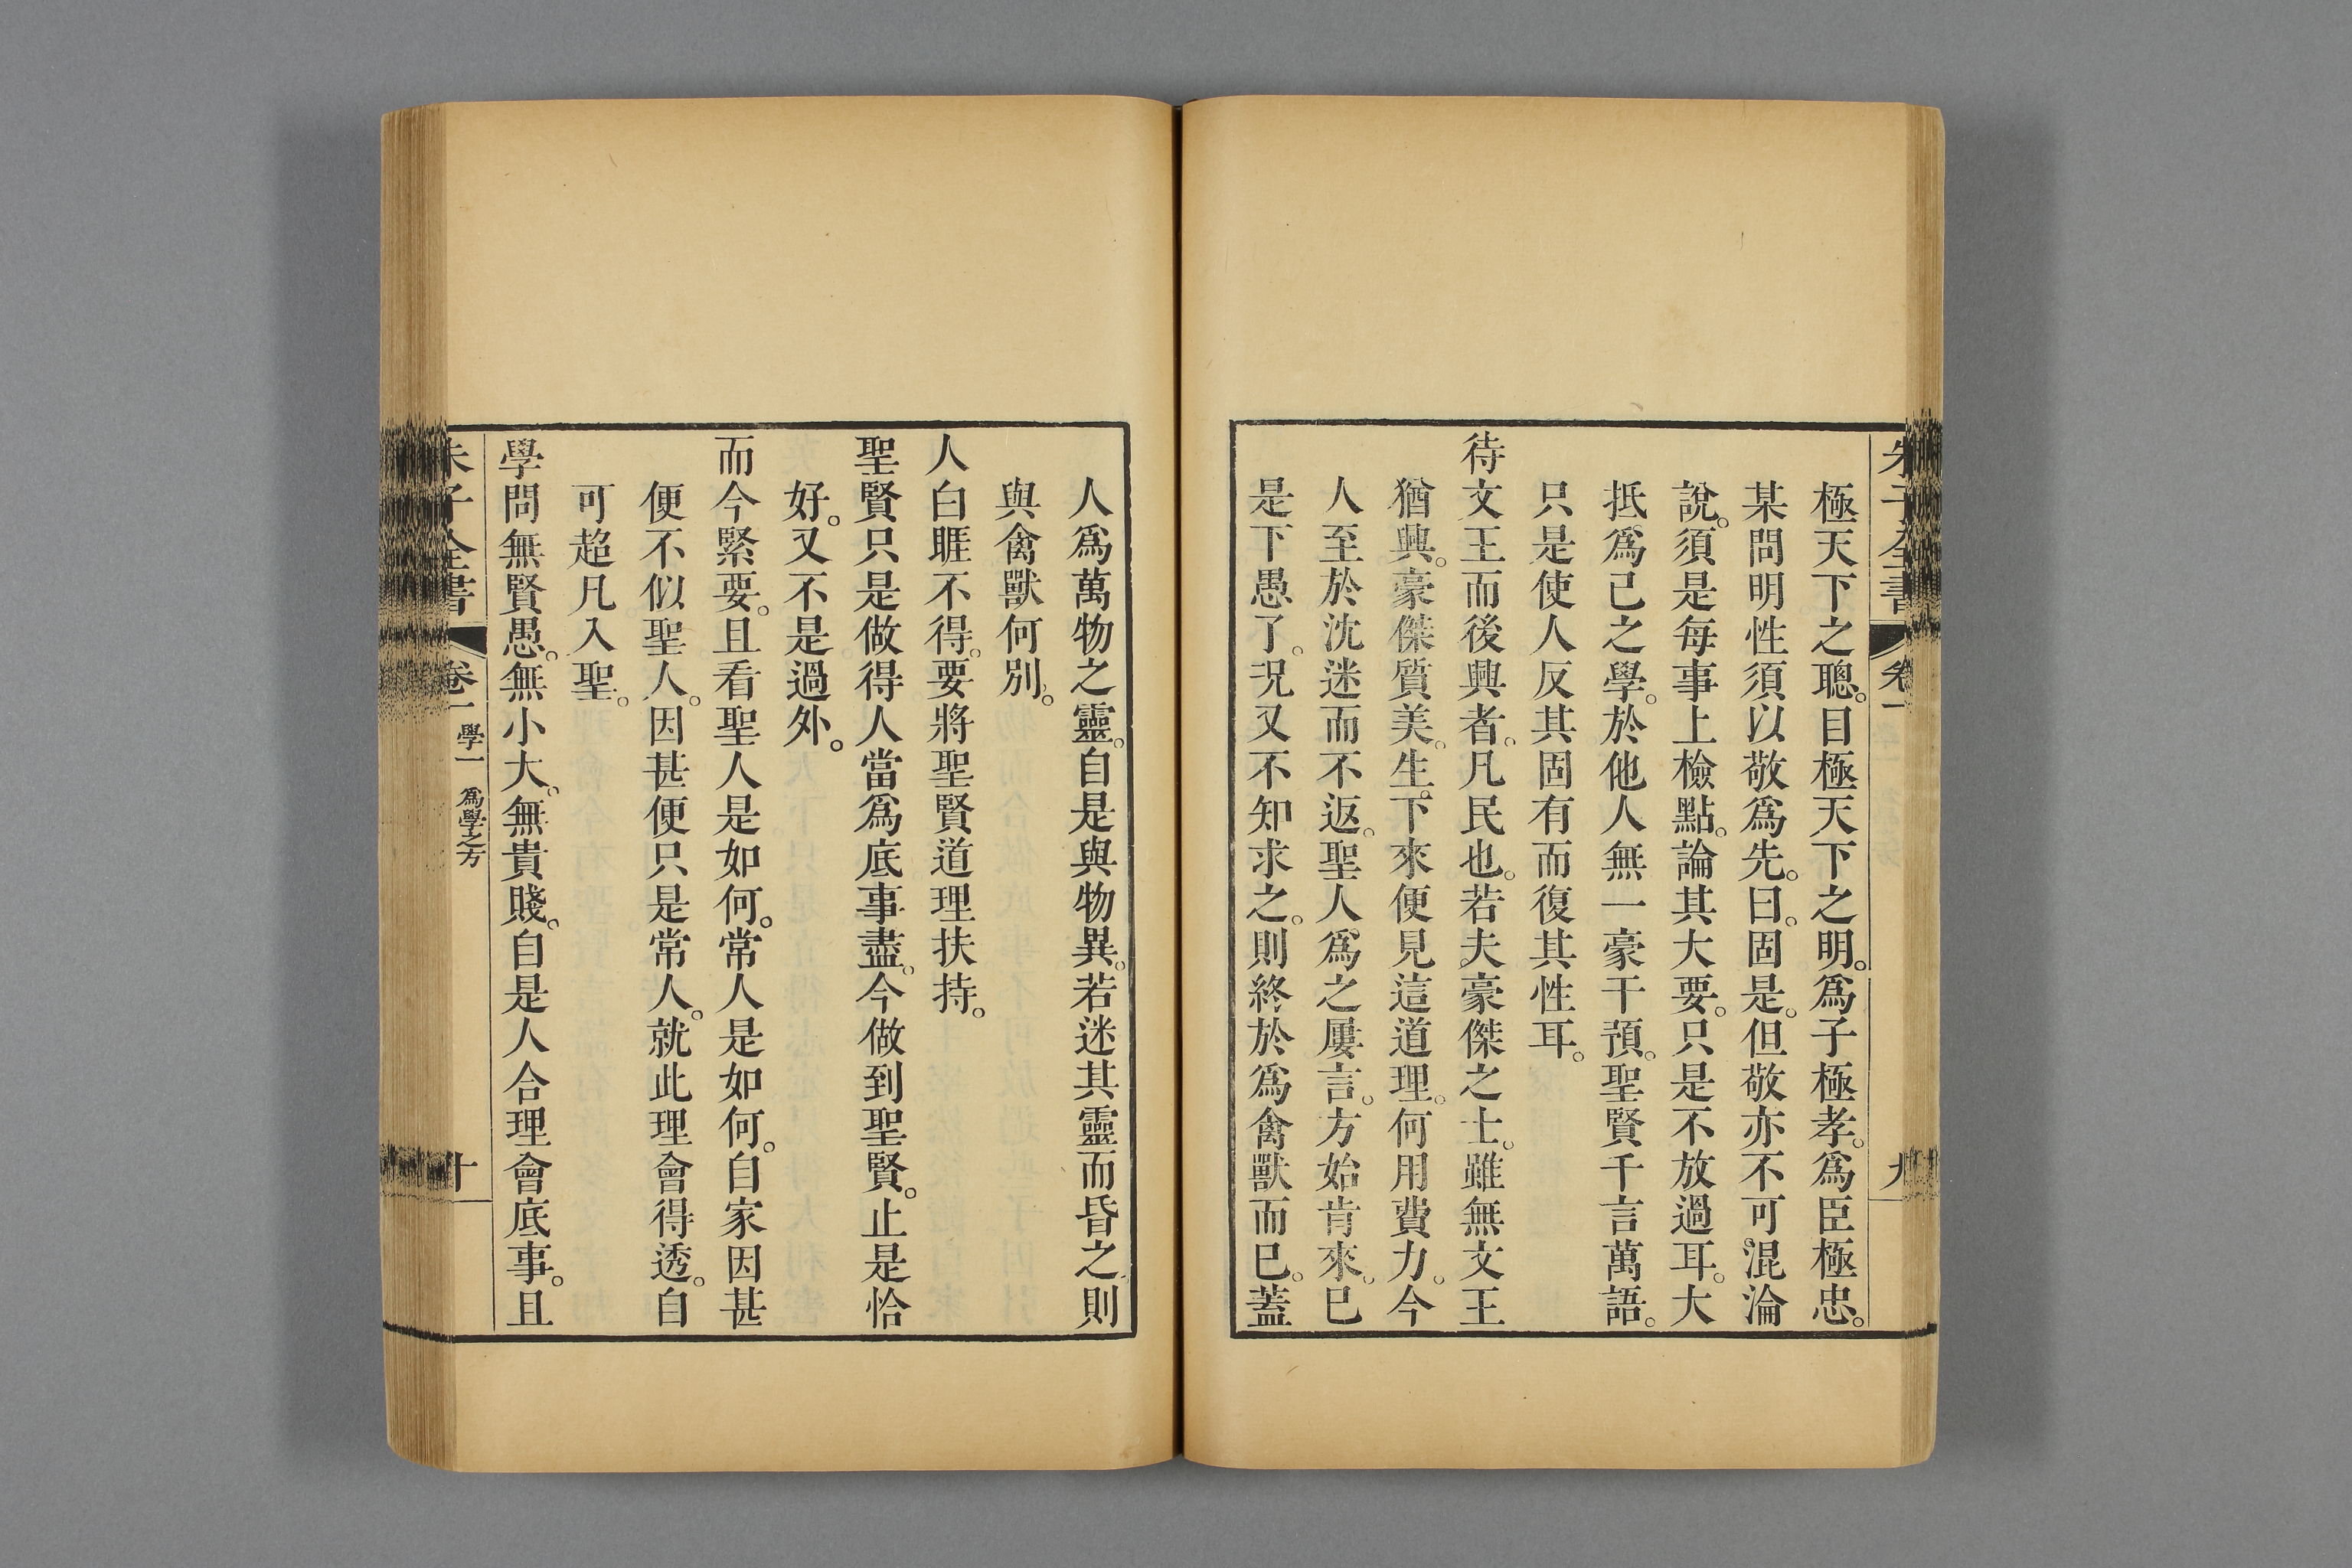 朱子全書 卷一 九
極天下之聰。目極天下之明。爲子極孝。爲臣極忠。
某問明性須以敬爲先。曰。固是。但敬亦不可混淪
說。須是每事上檢點。論其大要。只是不放過耳。大
抵爲己之學。於他人無一豪干預。聖賢千言萬語。
只是使人反其固有而復其性耳。
待文王而後興者。凡民也。若夫豪傑之士。雖無文王
猶興。豪傑質美。生下來便見這道理。何用費力。今
人至於沈迷而不返。聖人爲之屢言。方始肯來。已
是下愚了。況又不知求之。則終於爲禽獸而已。蓋
人爲萬物之靈。自是與物異。若迷其靈而昏之。則
與禽獸何別。
人白睚不得。要將聖賢道理扶持。
聖賢只是做得人當爲底事盡。今做到聖賢。止是恰
好。又不是過外。
而今緊要。且看聖人是如何。常人是如何。自家因甚
便不似聖人。因甚便只是常人。就此理會得透。自
可超凡入聖。
學問無賢愚。無小大。無貴賤。自是人合理會底事。且
朱子全書 卷一 學一 爲學之方 十